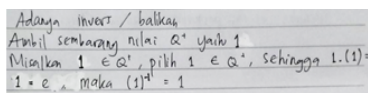 Adanya invers / balikan
Ambil sembarang nilai Q⁺ yaitu 1
Misalkan 1 ∈ Q⁺, pilih 1 ∈ Q⁺, sehingga 1.(1) =
1 = e, maka (1)⁻¹ = 1